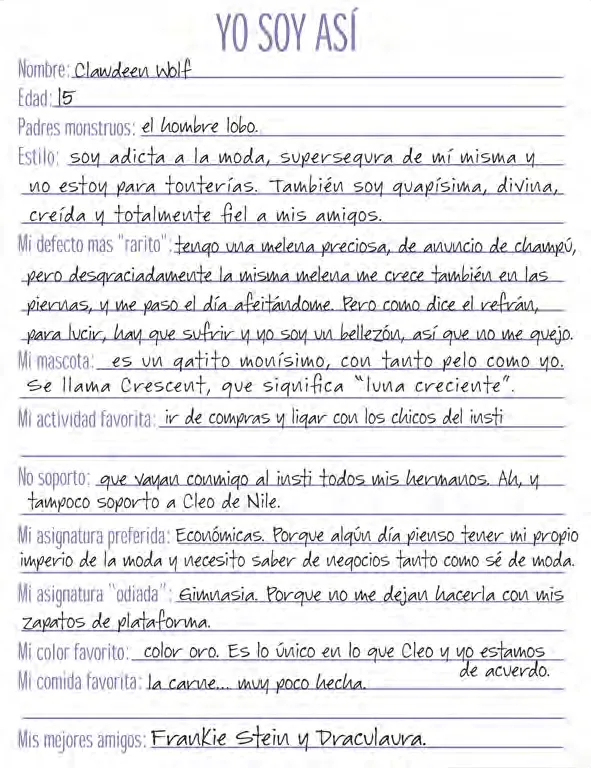 YO SOY ASÍ
Nombre: Clawdeen Wolf
Edad: 15
Padres monstruos: el hombre lobo.
Estilo: soy adicta a la moda, supersegura de mí misma y
no estoy para tonterías. También soy guapísima, divina,
creída y totalmente fiel a mis amigos.
Mi defecto más "rarito": tengo una melena preciosa, de anuncio de champú,
pero desgraciadamente la misma melena me crece también en las
piernas, y me paso el día afeitándome. Pero como dice el refrán,
para lucir, hay que sufrir y yo soy un bellezón, así que no me quejo.
Mi mascota: es un gatito monísimo, con tanto pelo como yo.
Se llama Crescent, que significa "luna creciente".
Mi actividad favorita: ir de compras y ligar con los chicos del insti
No soporto: que vayan conmigo al insti todos mis hermanos. Ah, y
tampoco soporto a Cleo de Nile.
Mi asignatura preferida: Económicas. Porque algún día pienso tener mi propio
imperio de la moda y necesito saber de negocios tanto como sé de moda.
Mi asignatura "odiada": Gimnasia. Porque no me dejan hacerla con mis
zapatos de plataforma.
Mi color favorito: color oro. Es lo único en lo que Cleo y yo estamos
de acuerdo.
Mi comida favorita: la carne... muy poco hecha.
Mis mejores amigos: Frankie Stein y Draculaura.